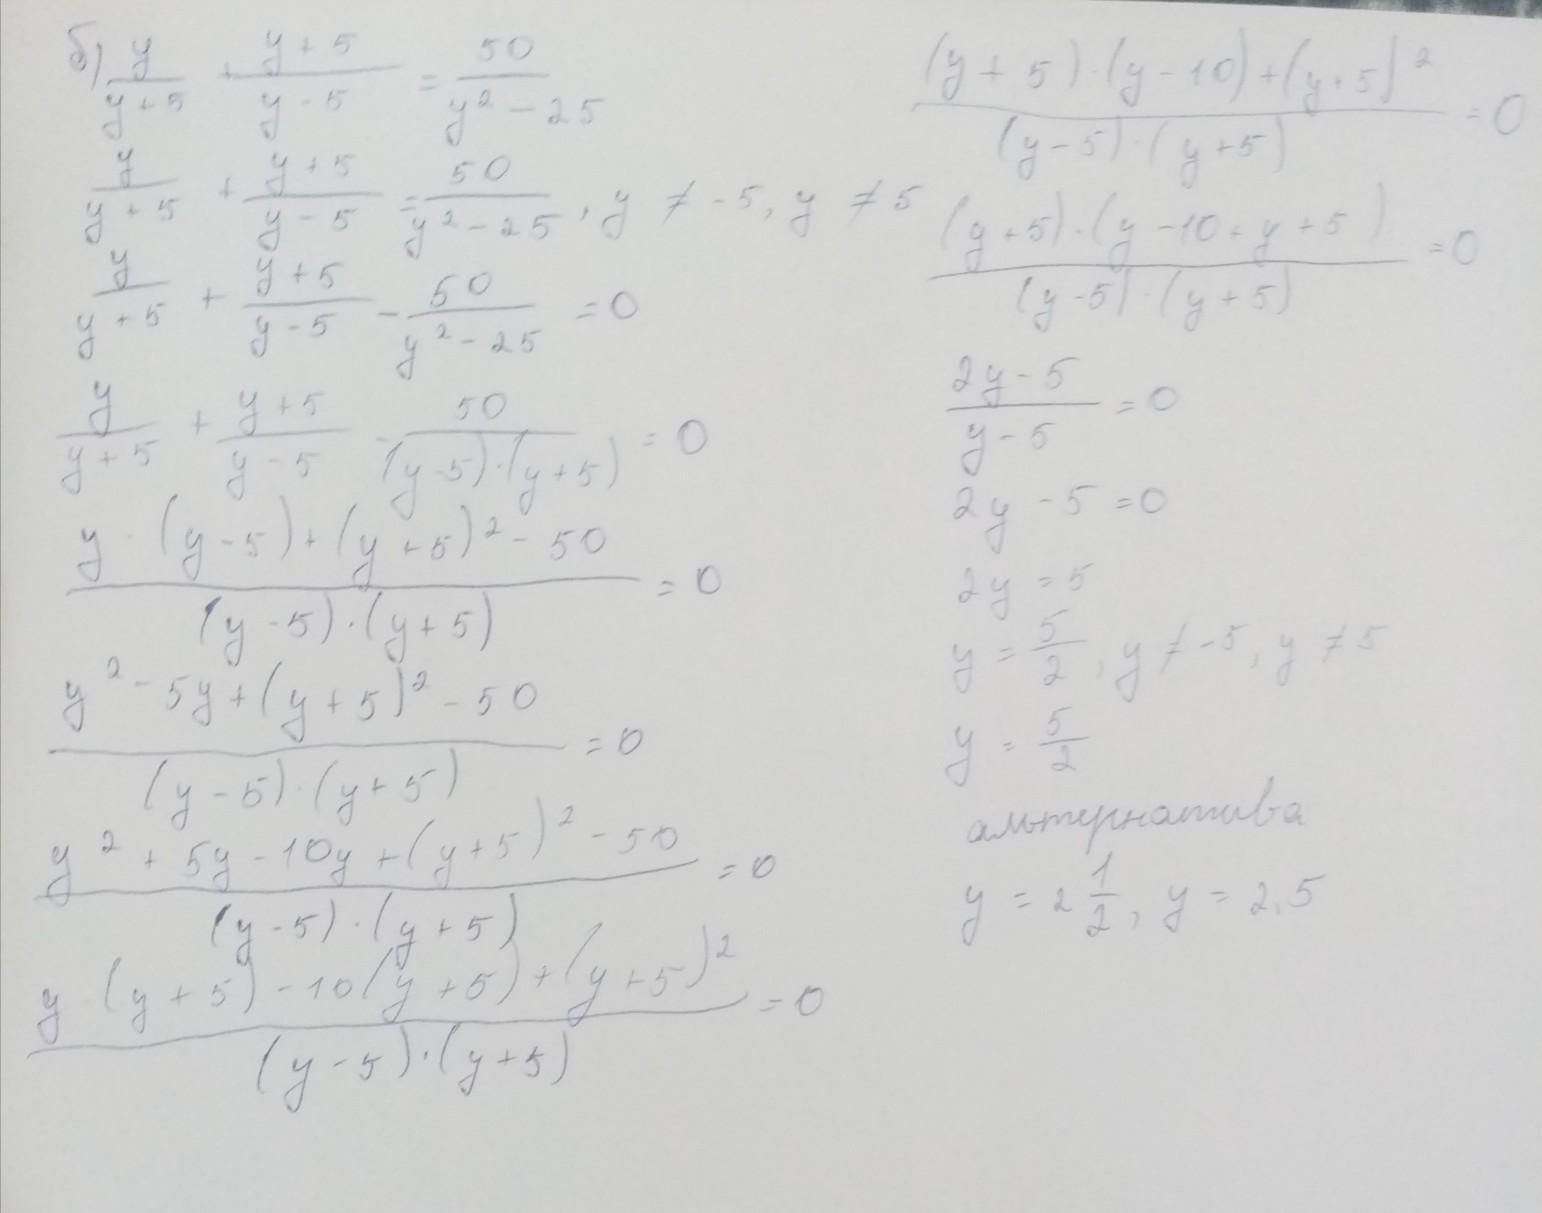 б) y/(y+5) + (y+5)/(y-5) = 50/(y²-25)
y/(y+5) + (y+5)/(y-5) = 50/(y²-25), y ≠ -5, y ≠ 5
y/(y+5) + (y+5)/(y-5) - 50/(y²-25) = 0
y/(y+5) + (y+5)/(y-5) - 50/((y-5)·(y+5)) = 0
(y·(y-5)+(y+5)²-50)/((y-5)·(y+5)) = 0
(y²-5y+(y+5)²-50)/((y-5)·(y+5)) = 0
(y²+5y-10y+(y+5)²-50)/((y-5)·(y+5)) = 0
(y·(y+5)-10(y+5)+(y+5)²)/((y-5)·(y+5)) = 0
((y+5)·(y-10)+(y+5)²)/((y-5)·(y+5)) = 0
((y+5)·(y-10+y+5))/((y-5)·(y+5)) = 0
(2y-5)/(y-5) = 0
2y-5=0
2y=5
y = 5/2, y ≠ -5, y ≠ 5
y = 5/2
альтернатива
y = 2 1/2, y = 2,5